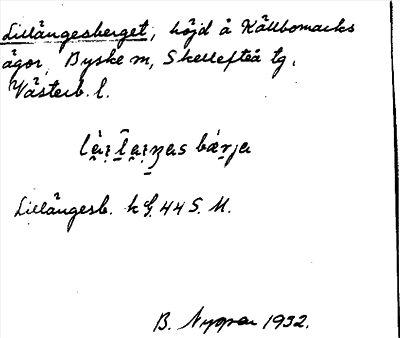 Lillängesberget, höjd å Källbomarks
ägor, Byske sn, Skellefteå tg,
Västerb. l.
Lillängesb. k G. 44 S. M.
B. Nyman 1932.